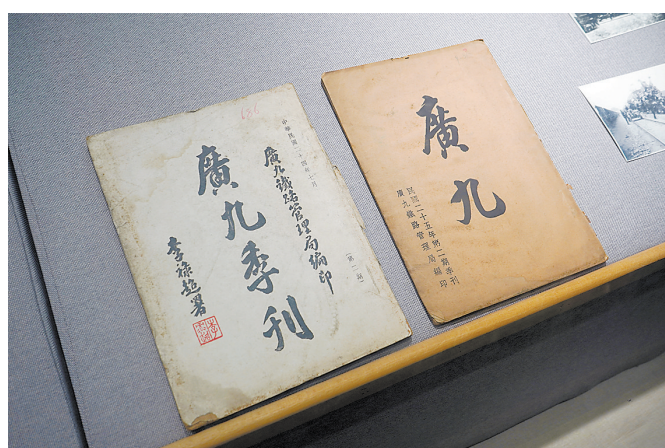 中華民國二十四年七月
廣九鐵路管理局編印
(第一期)
廣九季刊
李祿超署
廣九
民國二十五年第二期季刊
廣九鐵路管理局編印